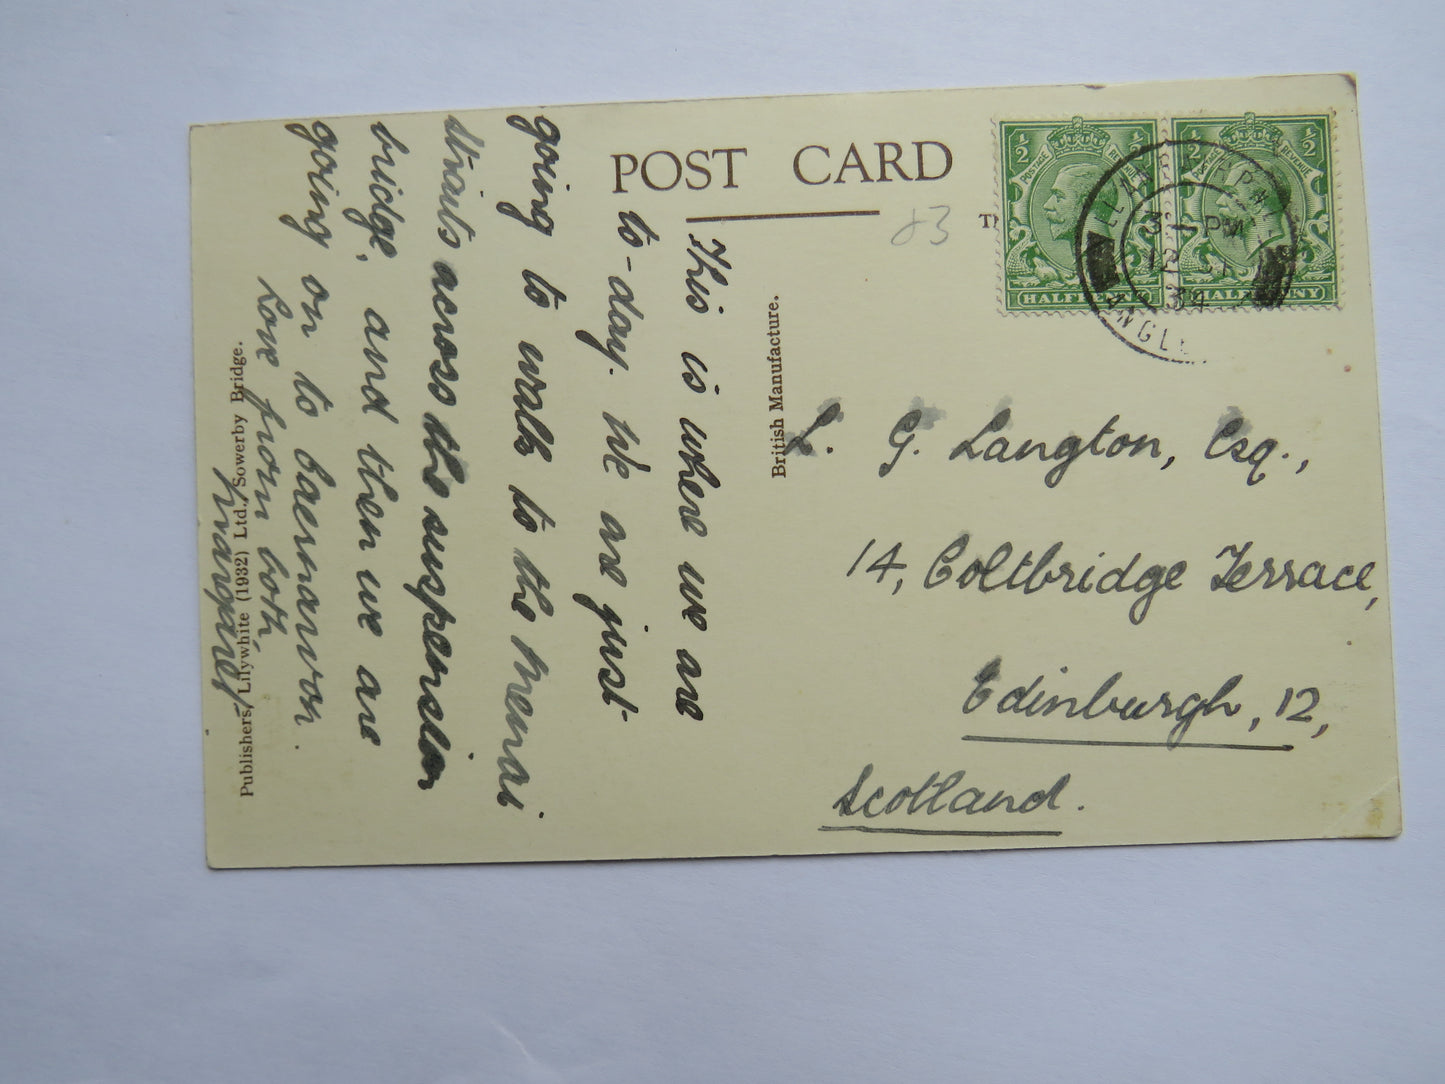 POST CARD
83
This is where we are
to-day. We are just
going to walk to the Menai
Straits across the suspension
bridge, and then we are
going on to Caernarvon.
Love from both,
Margaret
Publishers, Lilywhite (1932) Ltd., Sowerby Bridge.
British Manufacture.
½ ½
POSTAGE REVENUE
HALFPENNY
½ ½
POSTAGE REVENUE
HALFPENNY
3 - PM
34
L. G. Langton, Esq.,
14, Coltbridge Terrace,
Edinburgh, 12,
Scotland.